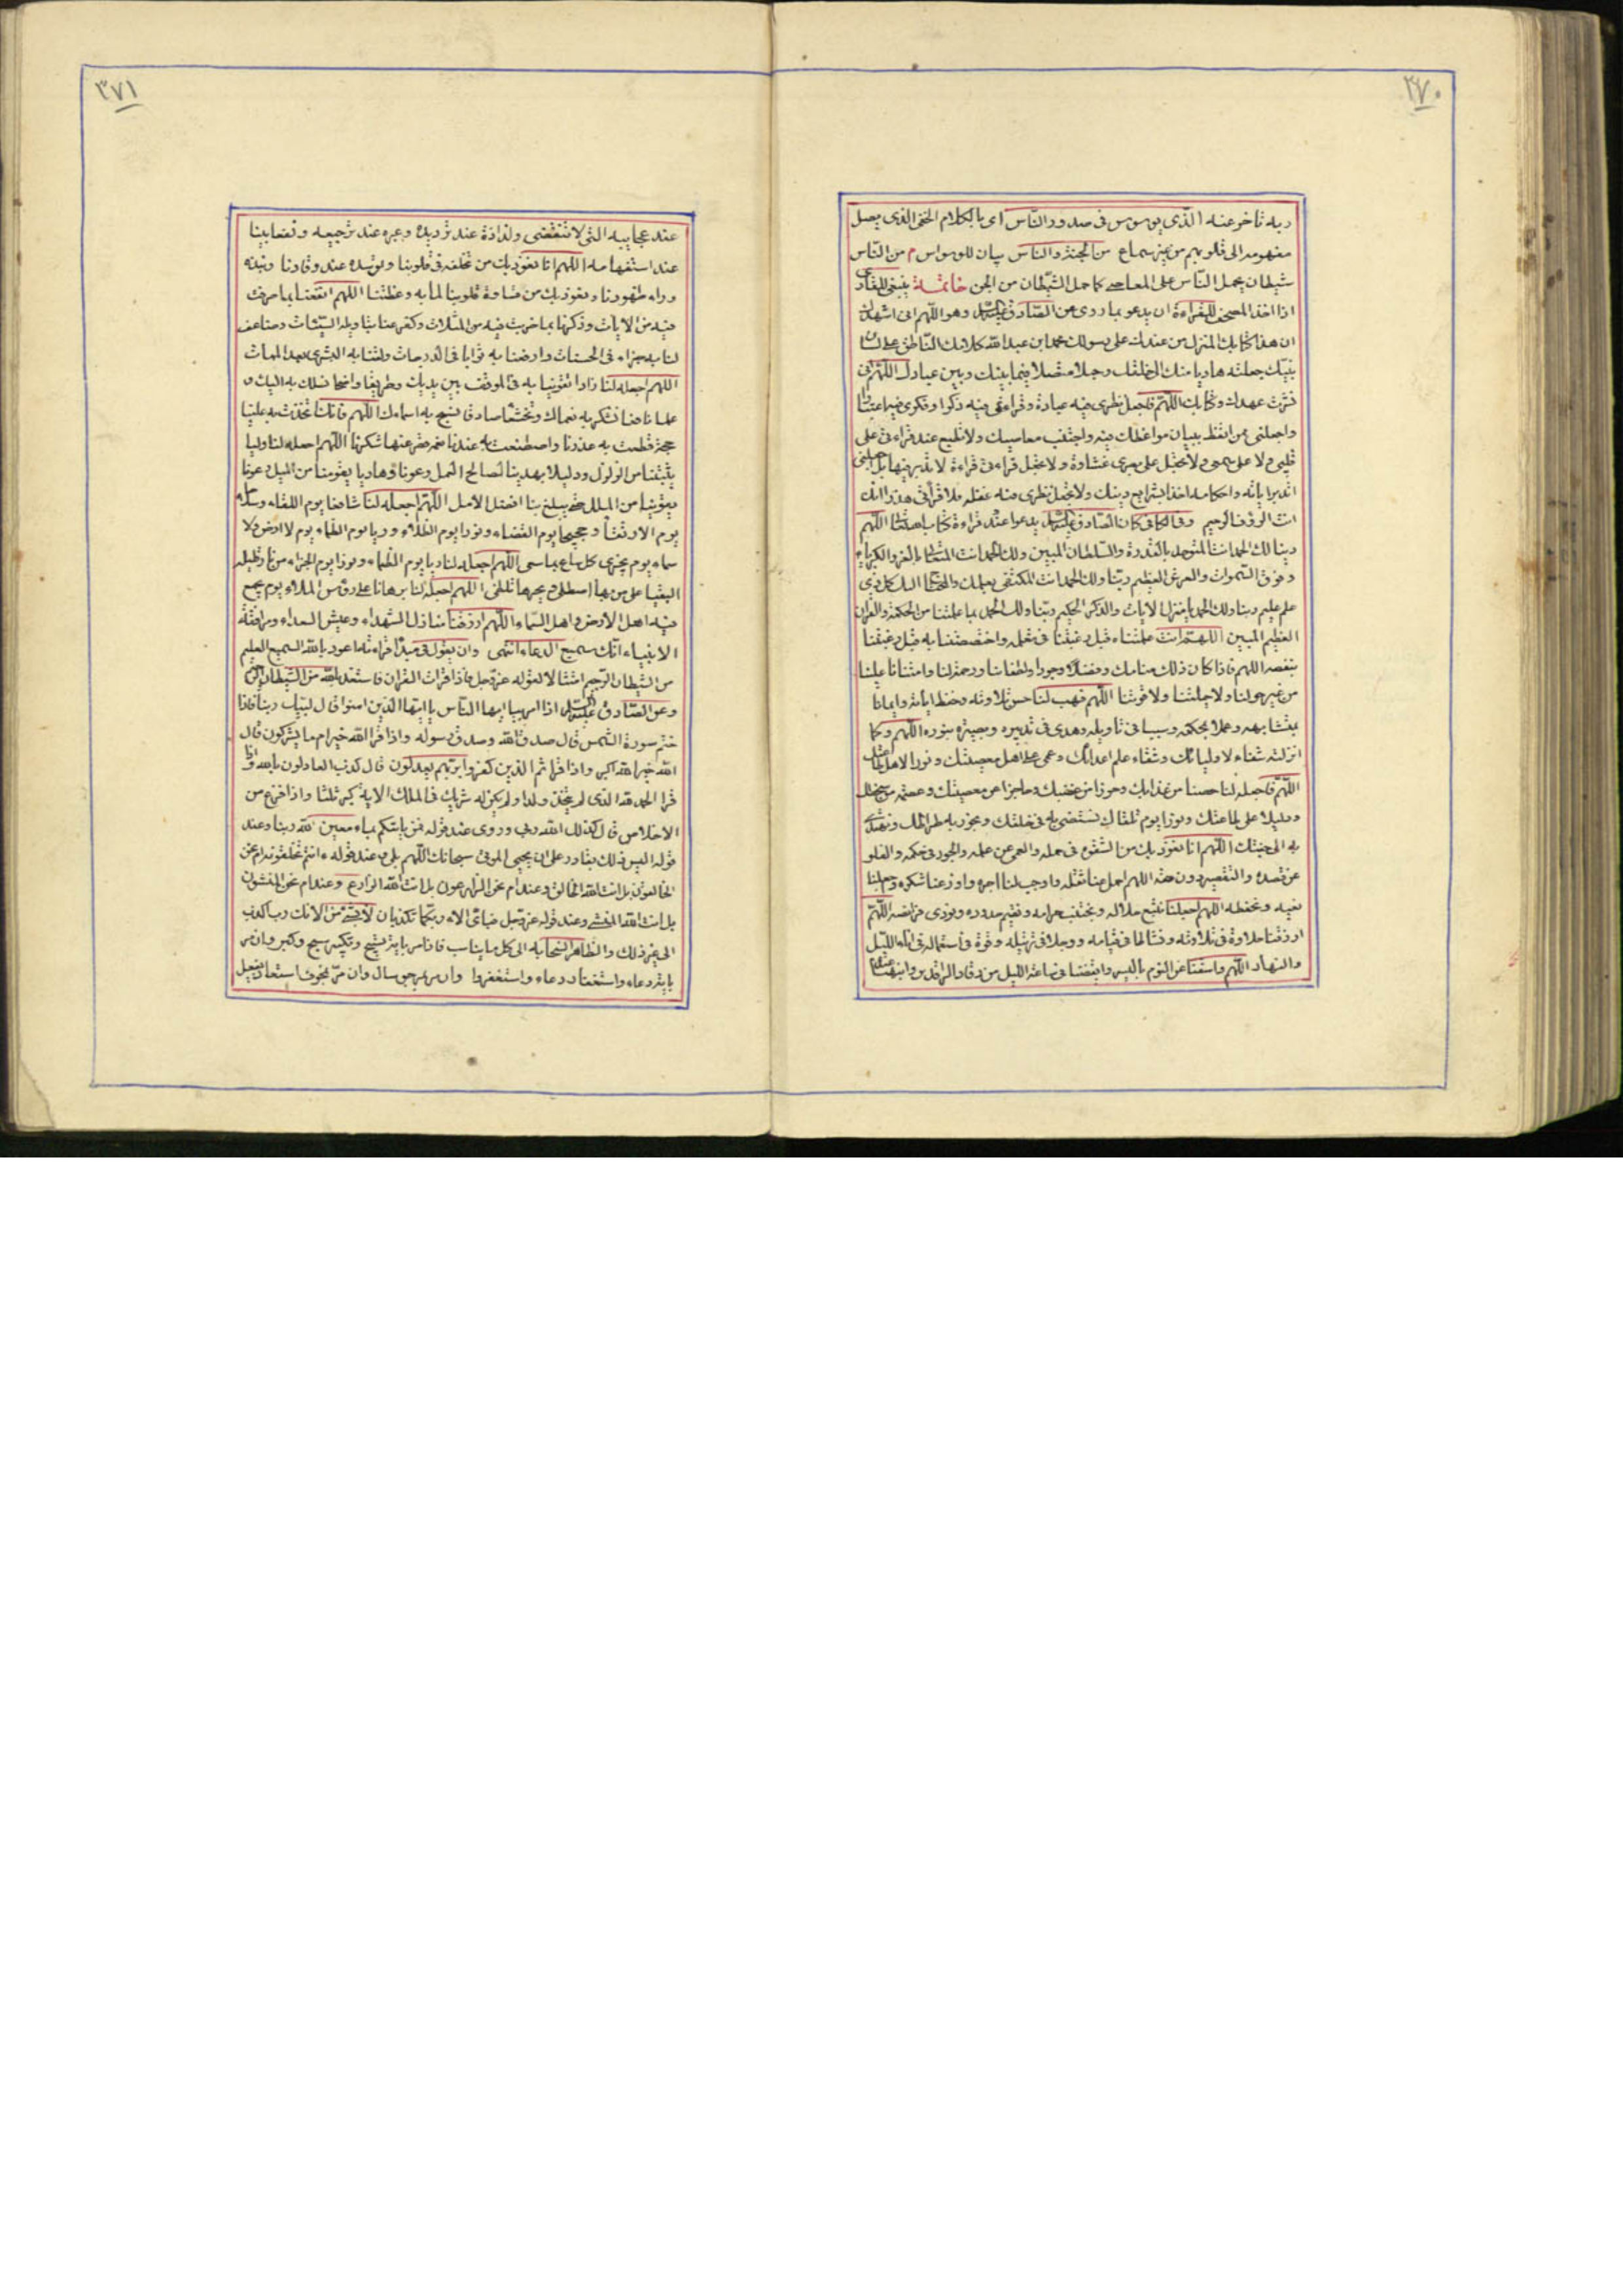 ٣٧٠
ربه تاخر عنه الّذى يوسوس فى صدور النّاس اى بالكلام الخفى الذى يصل
مفهومه الى قلوبهم من غير سماع من الجنة والناس بيان للوسواس م من النّاس
شيطان يحمل النّاس على المعاصى كما حمل الشّيطان من الجن خاتمة ينبغى للقارى
اذا اخذ المصحف للقراءة ان يدعو بما روى عن الصّادق عليه السلم وهو اللّهم انى اشهد ان
ان هذا كتابك المنزل من عندك على رسولك محمد ابن عبد الله كلامك النّاطق على لسان
نبيّك جعلته هاديا منك الى خلقك وحبلا متصلا فيما بينك وبين عبادك اللّهم انى
نشرت عهدك وكتابك اللّهمّ فاجعل نظرى فيه عبادة وقراءتى فيه ذكرا وفكرى فيه اعتبارا
واجعلنى ممن اتّعظ ببيان مواعظك فيه واجتنب معاصيك ولا تطبع عند قراءتى على
قلبى ولا على سمعى ولا تجعل على بصرى غشاوة ولا تجعل قراءتى قراءة لا تدبر فيها بل اجعلنى
اتدبر اياته واحكامه اخذا بشرايع دينك ولا تجعل نظرى فيه غفلة ولا قرأتى هذرا انك
انت الرؤف الرحيم وفى الكافى كان الصّادق عليه السلم يدعوا عند قراءة كتاب الله اللّهم
ربنا لك الحمد انت المتوحد بالقدرة والسّلطان المبين ولك الحمد انت المتعالى بالعز والكبرياء
وفوق السّموات والعرش العظيم ربّنا ولك الحمد انت المكتفى بعلمك والمحتاج اليك كل ذى
علم عليم ربنا ولك الحمد يا منزل الايات والذكر الحكيم ربّنا ولك الحمد بما علمتنا من الحكمة والقران
العظيم المبين اللهمّ انت علمتناه قبل رغبتنا فى تعلمه واختصصتنا به قبل رغبتنا
بنفعه اللهم فاذا كان ذلك منا منك وفضلا وجودا ولطفا بنا ورحمة لنا وامتنانا علينا
من غير حولنا ولا حيلتنا ولا قوتنا اللّهم فهب لنا حسن تلاوته وحفظ اياته وايمانا
بمتشابهه وعملا بمحكمه وسببا فى تاويله وهدى فى تدبيره وبصيرة بنوره اللّهم وكما
انزلته شفاء لاوليائك وشقاء على اعدائك وعمى على اهل معصيتك ونورا لاهل طاعتك
اللّهمّ فاجعله لنا حصنا من عذابك وحرزا من غضبك وحاجزا عن معصيتك وعصمة من سخطك
ودليلا على طاعتك ونورا يوم نلقاك نستضى به فى خلقك ونجوز به صراطك ونهتدى
به الى جنتك اللّهم انا نعوذ بك من الشقوة فى حمله والعمى عن علمه والجور فى حكمه والغلو
عن قصده والتقصير دون حقه اللهم احمل عنا ثقله واوجب لنا اجره واوزعنا شكره واجعلنا
نعيه ونحفظه اللهم اجعلنا نتبع حلاله ونجتنب حرامه ونقيم حدوده ونؤدى فرائضه اللّهمّ
ارزقنا حلاوة فى تلاوته ونشاطا فى قيامه ووجلا فى ترتيله وقوة فى استعماله فى اناء اللّيل
والنهار اللّهم واسقنا من النوم باليسير وايقظنا فى ساعة الليل من رقاد الراقدين وانبهنا
٣٧١
عند عجايبه التى لا تنقضى ولذاذة عند ترديده وعبرة عند ترجيعه ونفعا بينا
عند استفهامه اللهم انا نعوذ بك من تخلفه فى قلوبنا وتوسده عند رقادنا ونبذه
وراء ظهورنا ونعوذ بك من قساوة قلوبنا لما به وعظتنا اللهم انفعنا بما صرفت
فيه من الايات وذكرنا بما ضربت فيه من المثلات وكفر عنا بتاويله السيّئات وضاعف
لنا به جزاء فى الحسنات وارفعنا به ثوابا فى الدرجات ولقنا به البشرى بعد الممات
اللهم اجعله لنا زادا تقوينا به فى الموقف بين يديك وطريقا واضحا نسلك به اليك و
علما نافعا نشكر به نعماك وتخشعا صادقا نسبح به اسماءك اللّهم فانك اتخذت به علينا
حجة قطعت به عذرنا واصطنعت به عندنا نعمة قصر عنها شكرنا اللّهم اجعله لنا وليا
يثبتنا من الزلل ودليلا يهدينا لصالح العمل وعونا وهاديا يقومنا من الميل وعونا
يقوينا من الملل حتى يبلغ بنا افضل الامل اللّهم اجعله لنا شافعا يوم اللقاء وسلاحا
يوم الارتقاء وحجيجا يوم القضاء ونورا يوم الظلماء وريا يوم الظماء يوم لا ارض ولا
سماء يوم يجزى كل ساع بما سعى اللّهم اجعله لنا ريا يوم الظماء ونورا يوم الجزاء من نار قليلة
البقيا على من بها اصطلى وبحرها تلظى اللّهم اجعله لنا برهانا على رؤس الملاء يوم يجمع
فيه اهل الارض واهل السّماء اللّهم ارزقنا منازل الشهداء وعيش السعداء ومرافقة
الانبياء انّك سميع الدعاء انتهى وان يقول فى مبدأ قراءته اعوذ بالله السميع العليم
من الشيطان الرّجيم امتثالا لقوله عزّ وجل فاذا قرأت القران فاستعذ بالله من الشّيطان الرجيم
وعن الصّادق عليه السلم اذا امر بيا ايها النّاس يا ايها الذين امنوا قال لبيك ربنا فاذا
ختم سورة الشّمس قال صدق الله وصدق رسوله واذا قرأ الله خير ام ما يشركون قال
الله خير الله اكبر واذا قرأ ثم الذين كفروا بربّهم يعدلون قال كذب العادلون بالله واذا
قرأ الحمد لله الذى لم يتخذ ولدا ولم يكن له شريك فى الملك الاية كبر ثلثا واذا فرغ من
الاخلاص قال كذلك الله ربى وروى عند قوله فمن ياتيكم بماء معين الله ربنا وعند
قوله اليس ذلك بقادر على ان يحيى الموتى سبحانك اللّهم بلى وعند قوله ءانتم تخلقونه ام نحن
الخالقون بل انت الله الخالق وعند ام نحن الزارعون بل انت الله الزارع وعند ام نحن المنشئون
بل انت الله المنشى وعند قوله عز وجل فباى الاء ربّكما تكذبان لا بشئ من الائك رب اكذب
الى غير ذلك والظاهر استحبابه الى كل ما يناسب فاذا مر باية تسبيح وتكبير سبح وكبر وان مر
باية دعاء واستغفار دعاء واستغفروا وان مر بمرجو سال وان مرّ بمخوف استعاذ